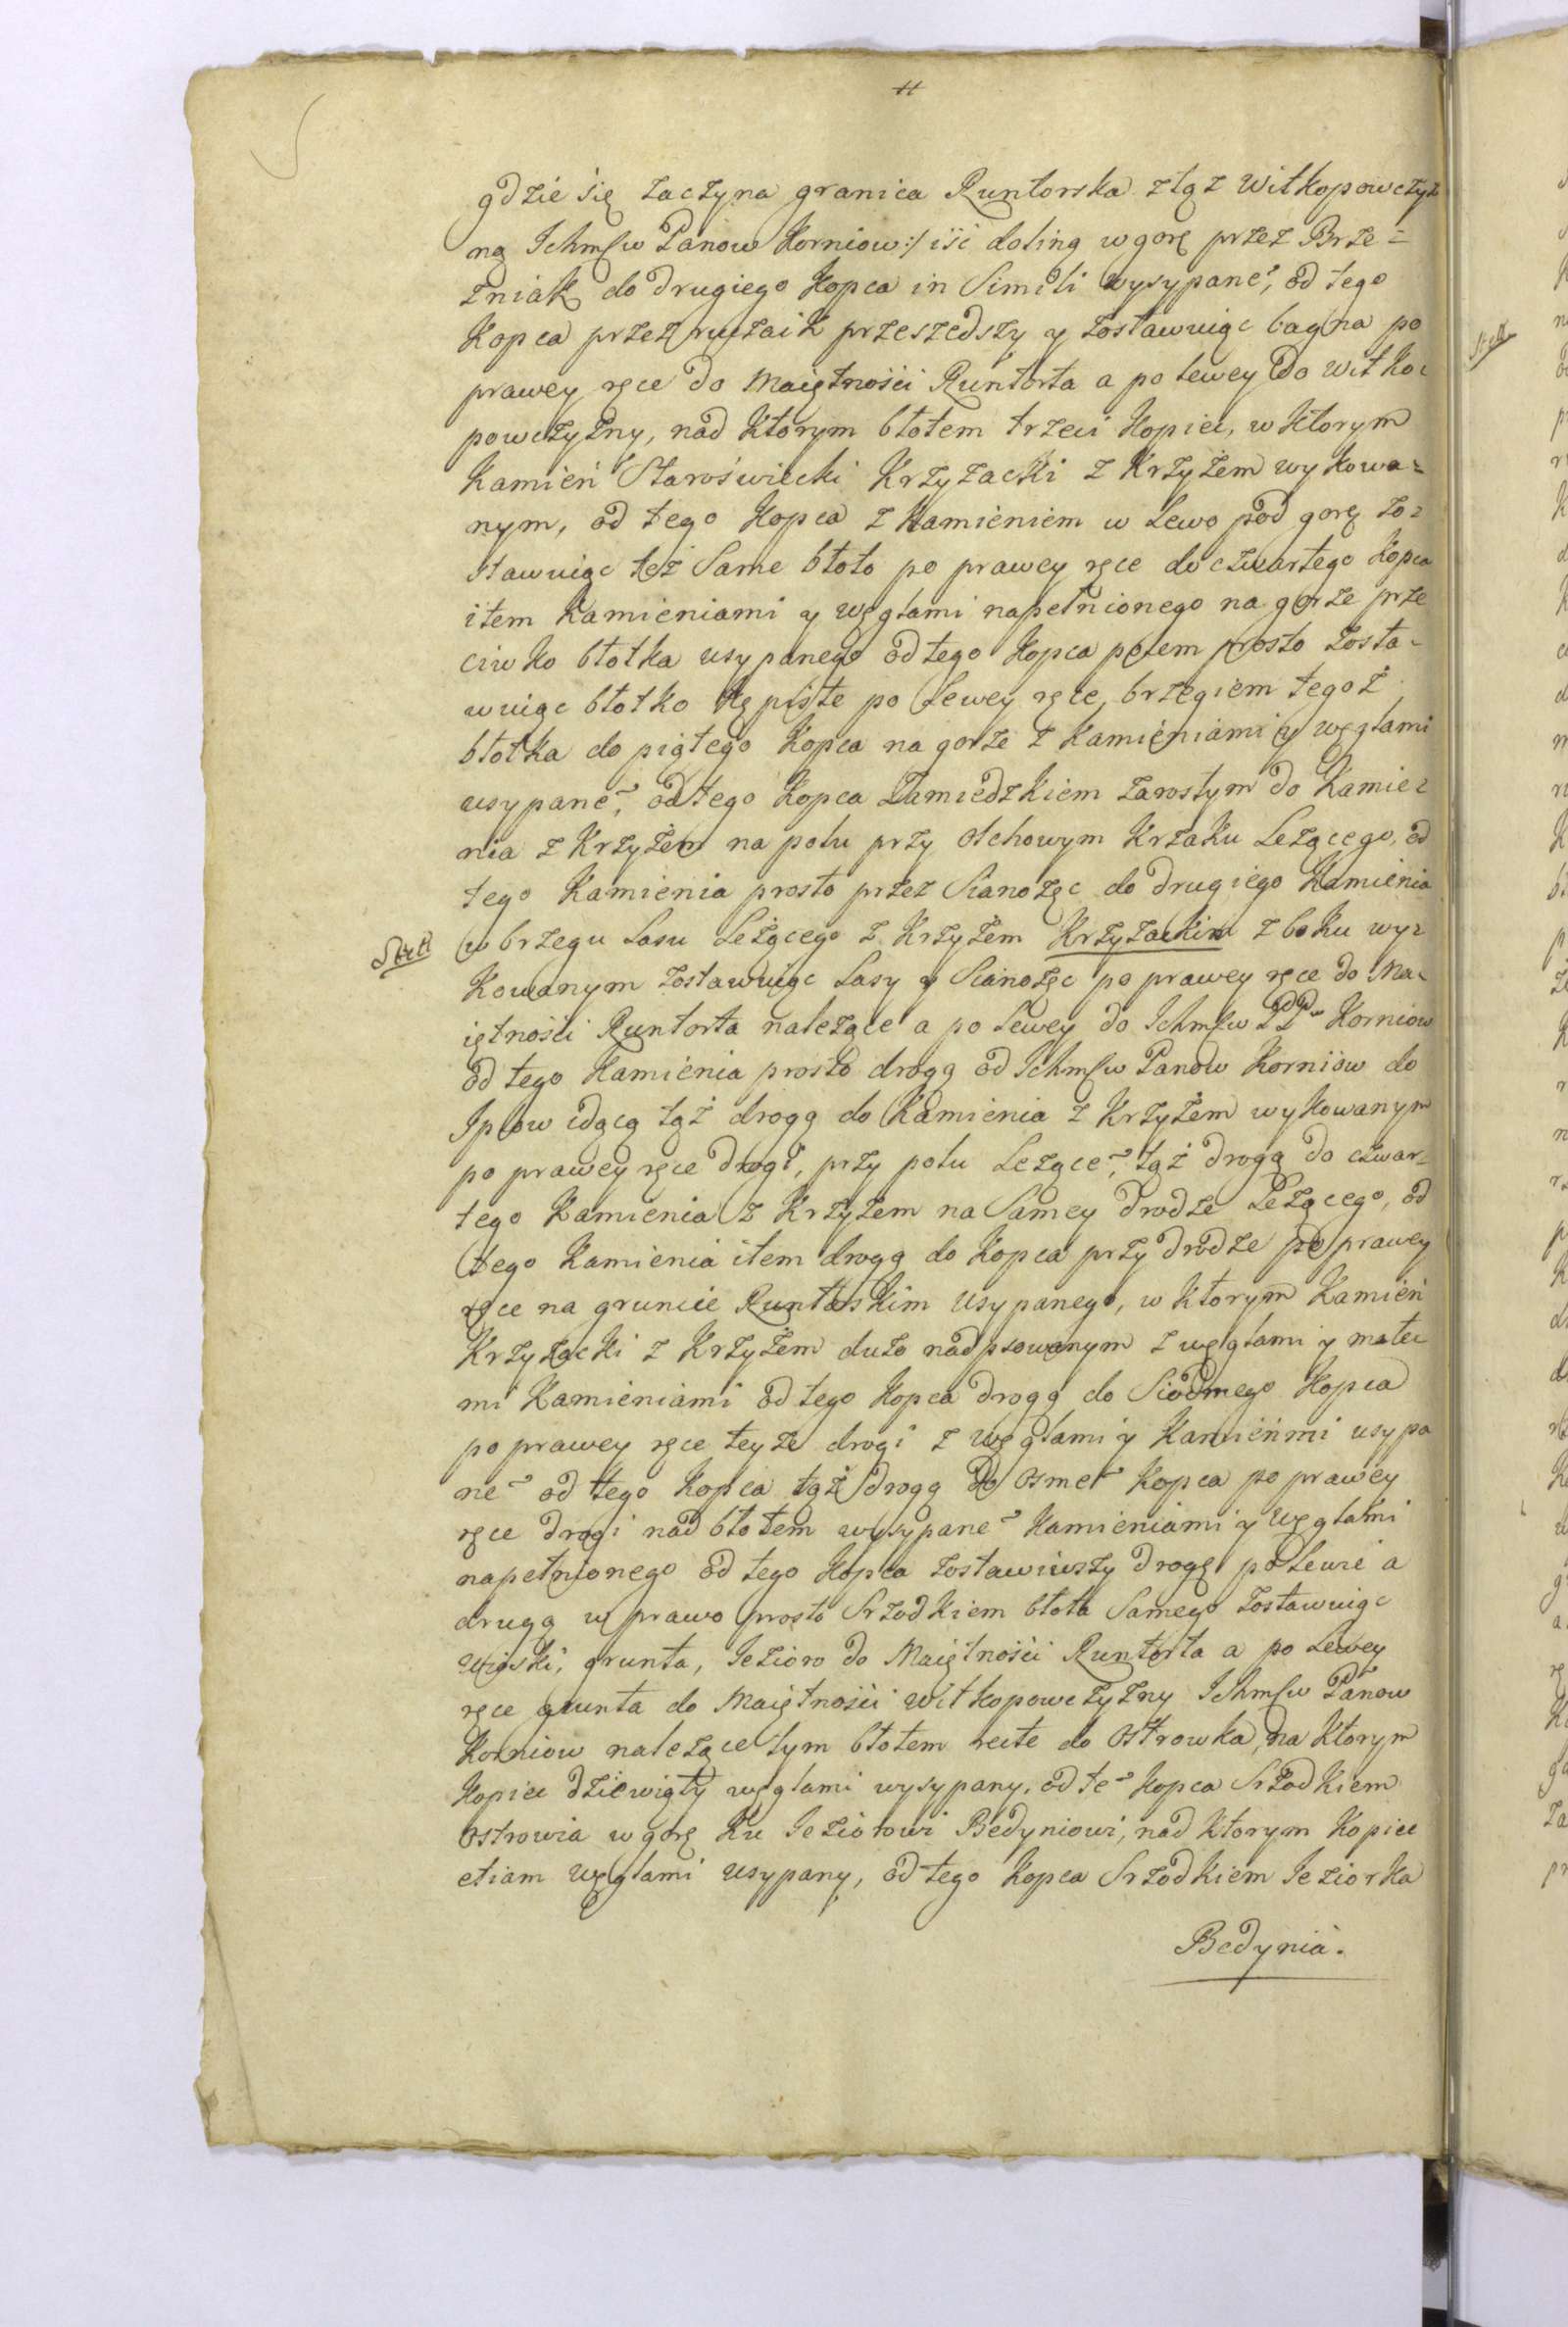 gdzie się zaczyna granica Runtorska z tą z Witkopowczyz
ną Ichmſw Panow Korniow:/ iśc doliną w gorę przez Brze=
zniak do drugiego Kopca in Simili wysypane°, od tego
Kopca przez przeszedszy y zostawuiąc bagna po
prawey ręce do Maiętności Runtorta a po lewey do Witko=
powczyzny, nad Ktorym błotem trzeci Kopiec, w Ktorym
Kamień Staroświecki Krzyżacki z Krzyżem wykowa=
nym, od tego Kopca z Kamieniem w Lewo pod gorę zo=
stawuiąc też Same błoto po prawey ręce do czwartego Kopca
item Kamieniami y węglami napełnionego na gorze prze
ciwko błotka usypanego od tego Kopca potem prosto zosta=
wuiąc błotko kępiste po Lewey ręce, brzegiem tegoż
błotka do piątego Kopca na gorze z Kamieniami y węglami
usypane°, od tego Kopca Zamiedzkiem zarosłym do Kamie=
nia z Krzyżem na polu przy olchowym Krzaku Leżącego, od
tego Kamienia prosto przez Sianożęc do drugiego Kamienia
w brzegu Lasu Leżącego z Krzyżem Krzyzackim z boku wy=
Kowanym zostawuiąc Lasy y Sianożęc po prawey ręce do Ma=
iętności Runtorta należące a po Lewey do Ichmſw PP. Korniow
od tego Kamienia prosto drogą od Ichmſw Panow Korniow do
idącą tąż drogą do Kamienia z Krzyżem wykowanym
po prawey ręce drogi, przy polu Leżące°, tąż drogą do czwar=
tego Kamienia z Krzyżem na Samey drodze Leżącego, od
tego Kamienia item drogą do Kopca przy drodze po prawey
ręce na gruncie Runtorskim usypanego, w Ktorym Kamień
Krzyżacki z Krzyżem dużo nadpsowanym z węglami y małe
mi Kamieniami od tego Kopca drogą do Siodmego Kopca
po prawey ręce teyże drogi z węglami y Kamieńmi usypa
ne° od tego Kopca tąż drogą do osme° Kopca po prawey
ręce drogi nad błotem wysypane° Kamieniami y węglami
napełnionego od tego Kopca zostawiwszy drogę po Lewie a
drugą w prawo prosto Srzodkiem błota Samego zostawuiąc
wioski, grunta, Jezioro do Maiętności Runtorta a po Lewey
ręce grunta do Maiętności Witkopowczyzny Ichmſw Panow
Korniow należące tym błotem recte do Ostrowka, na Ktorym
Kopiec dziewiąty węglami wysypany, od te° Kopca Srzodkiem
Ostrowia w gorę Ku Jeziorowi Bedyniowi, nad Ktorym Kopiec
etiam węglami usypany, od tego Kopca Srzodkiem Jeziorka
Bedynia.